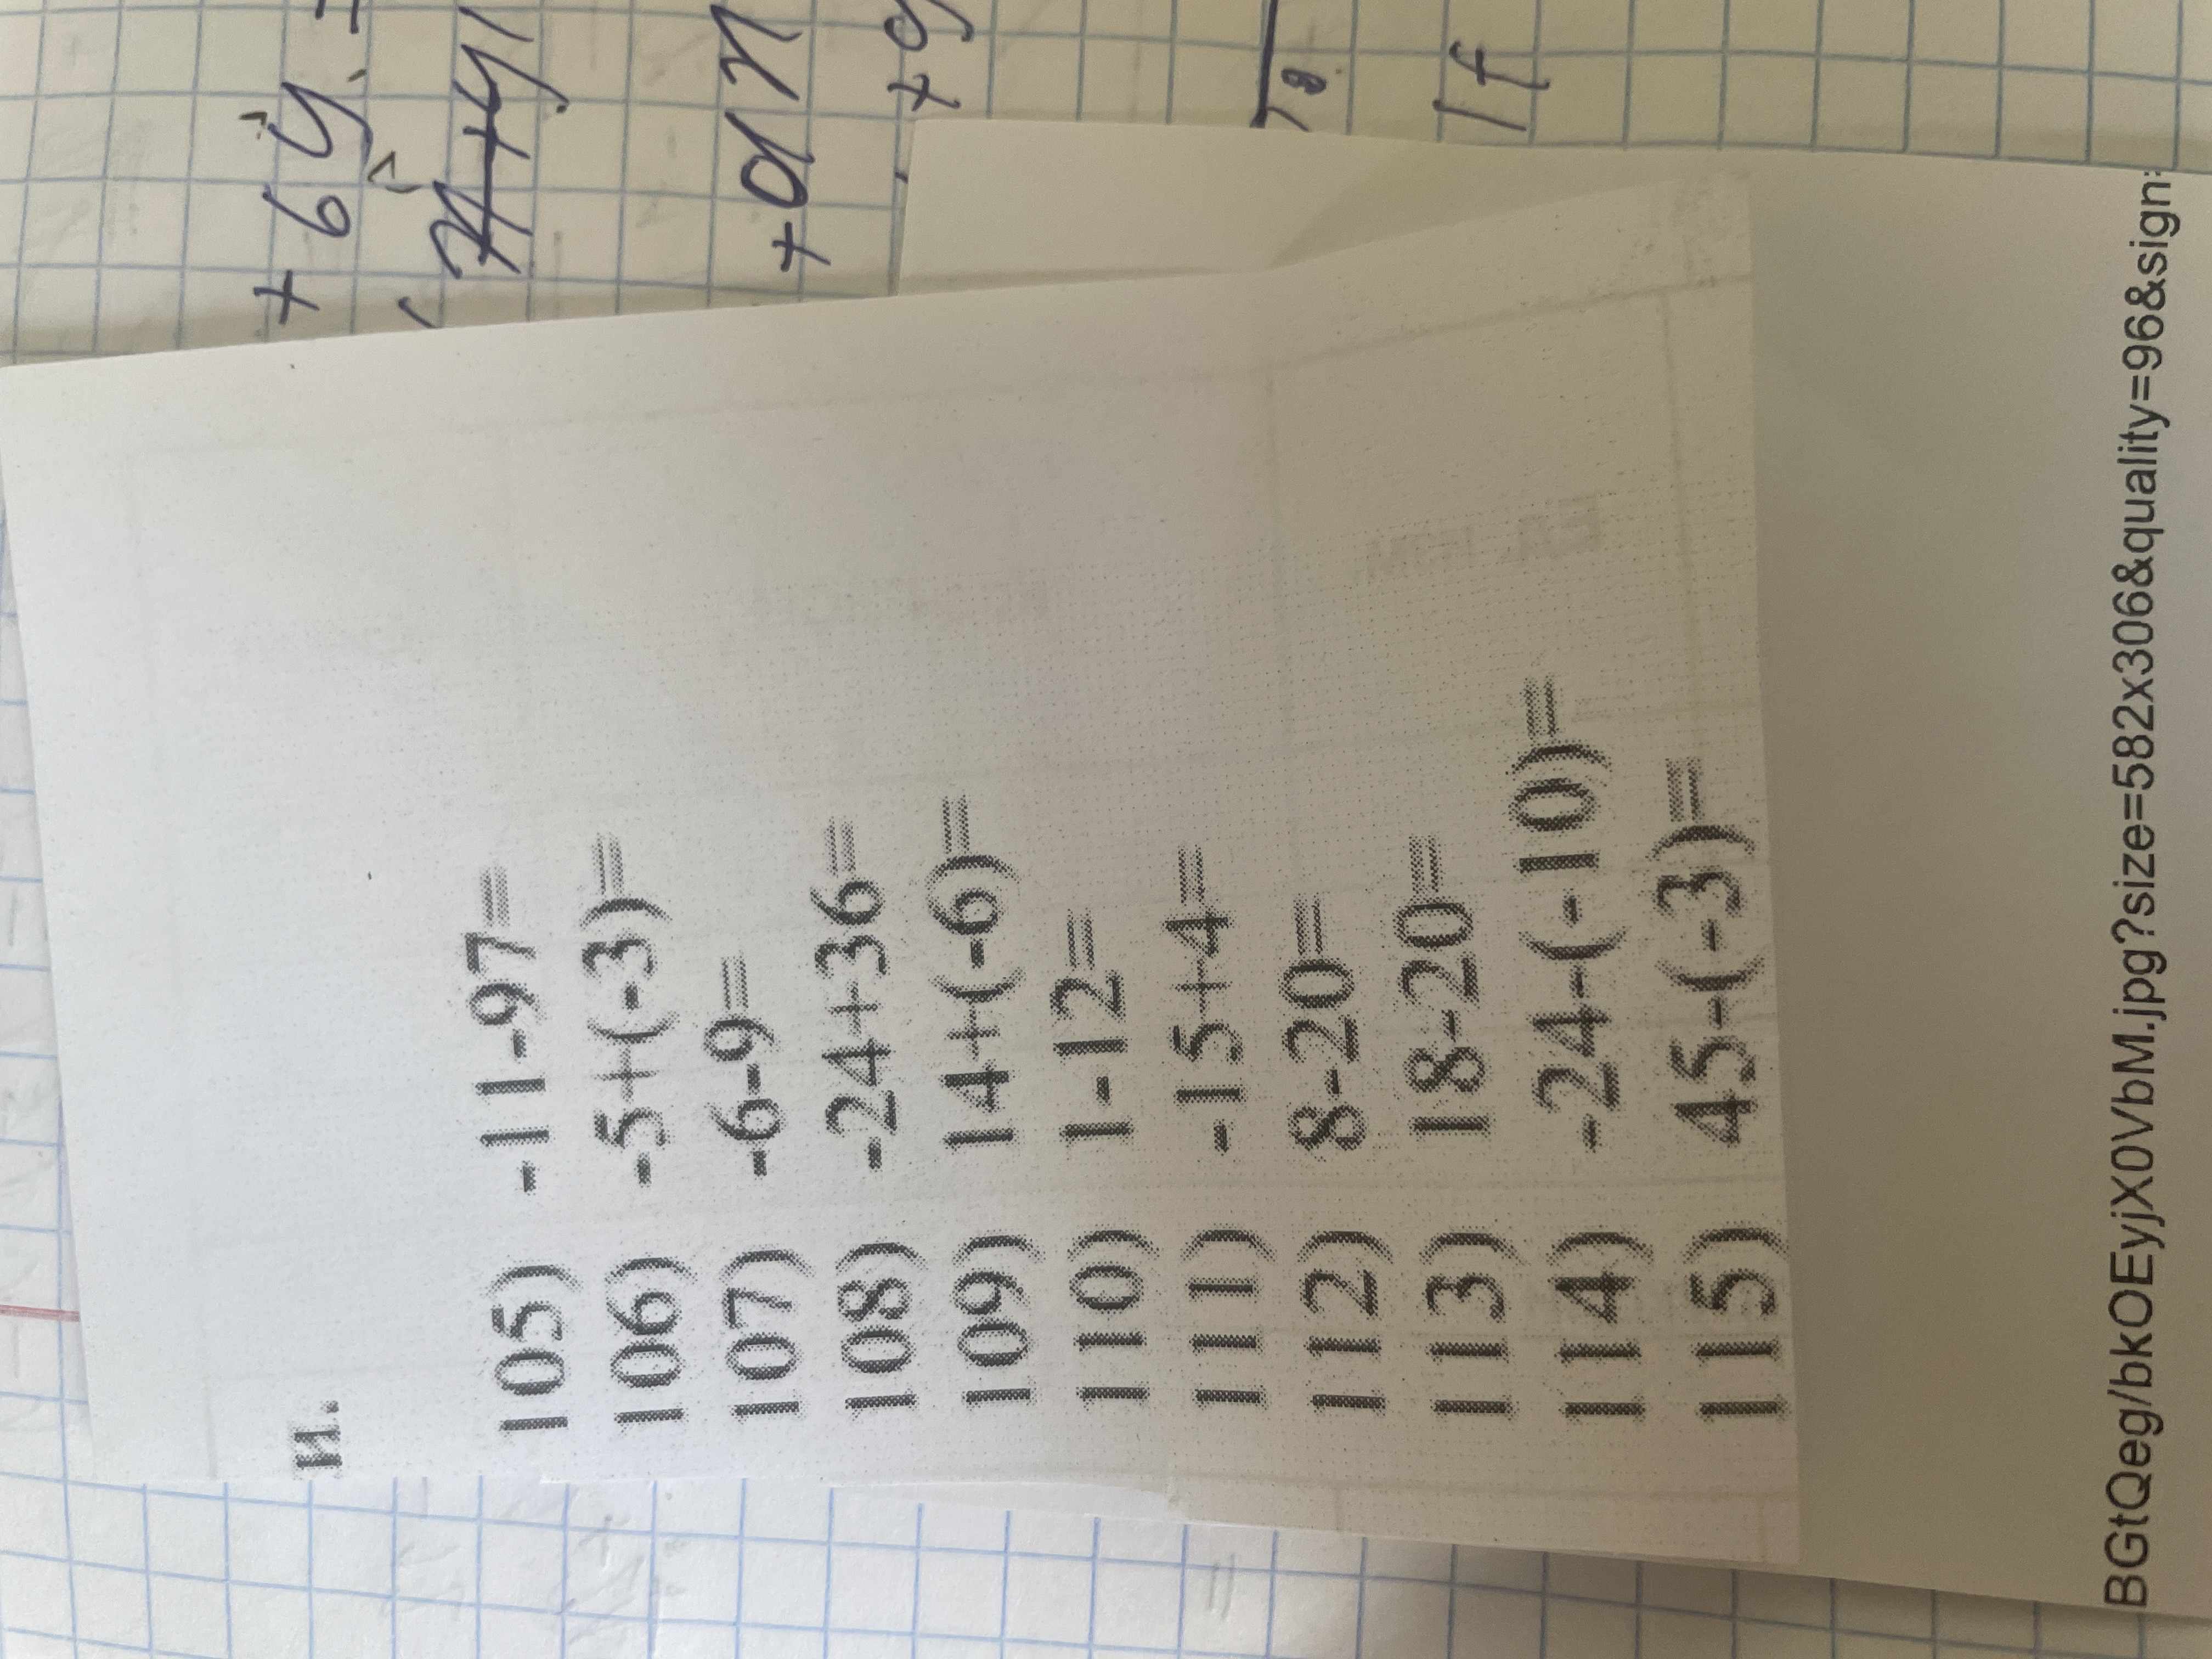 + 6 y =
+ a x
и.
105) -11-97=
106) -5+(-3)=
107) -6-9=
108) -24+36=
109) 14+(-6)=
110) 1-12=
111) -15+4=
112) 8-20=
113) 18-20=
114) -24-(-10)=
115) 45-(-3)=
BGtQeg/bkOEyjX0VbM.jpg?size=582x306&quality=96&sign=